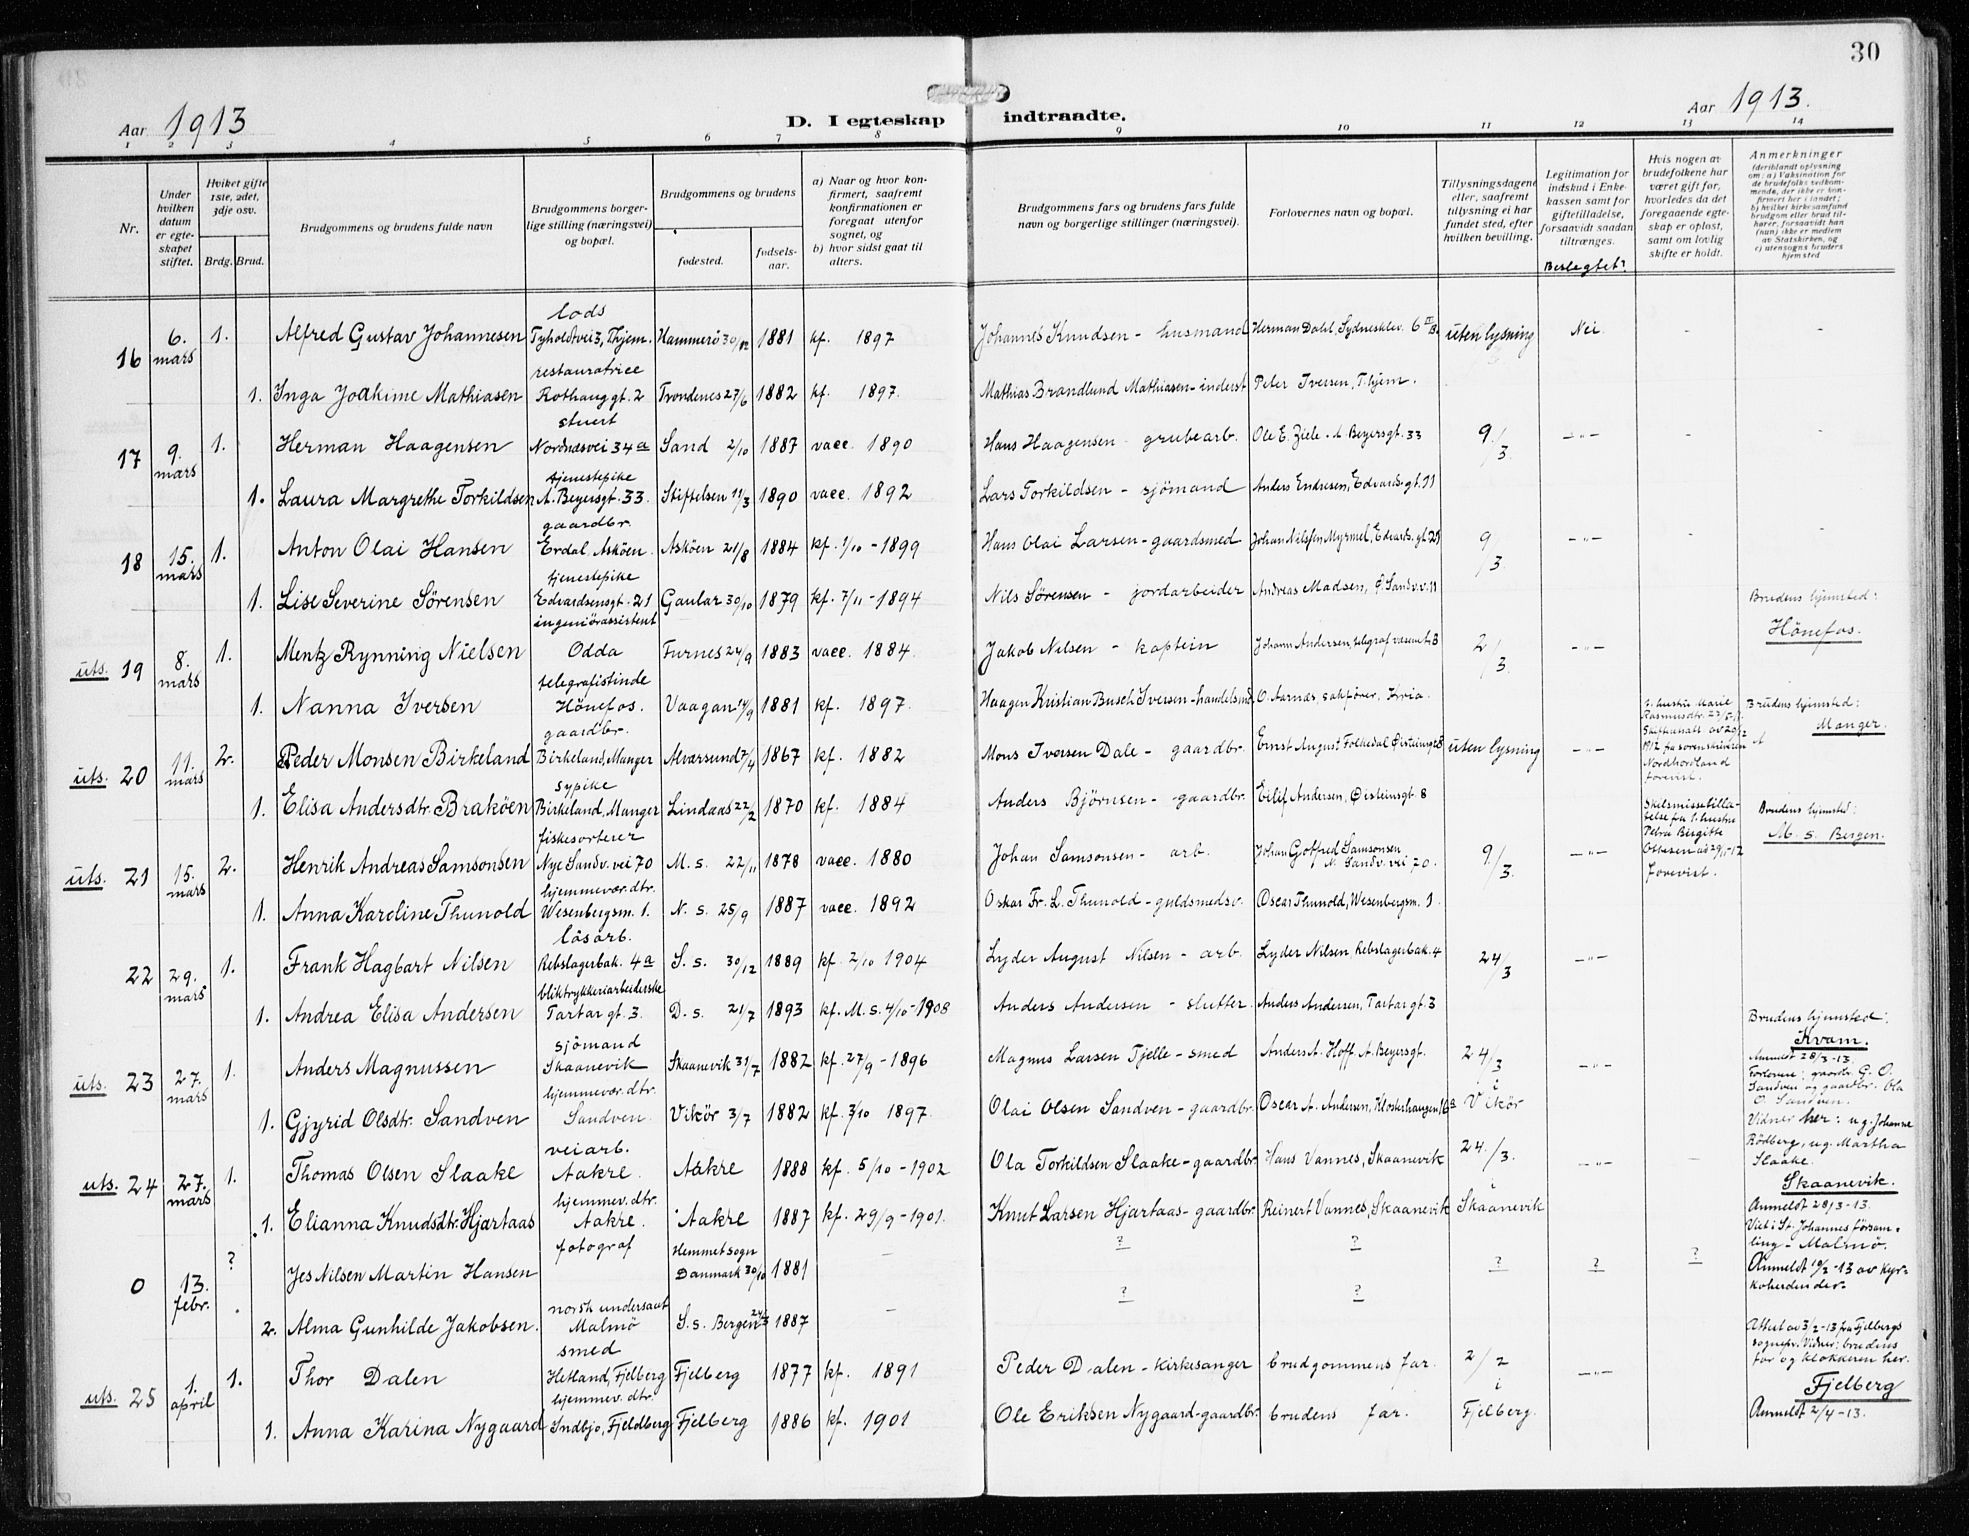 30
Aar 1913
D. I egteskap indtraadte.
Aar 1913.
1 2 3 4 5 6 7 8 9 10 11 12 13 14
Nr.
Under hvilken datum er egteskapet stiftet.
Hviket gifte 1ste, 2det, 3dje osv.
Brdg. Brud.
Brudgommens og brudens fulde navn
Brudgommens borgerlige stilling (næringsvei) og bopæl.
Brudgommens og brudens
fødested.
fødselsaar.
a) Naar og hvor konfirmert, saafremt konfirmationen er foregaat utenfor sognet, og
b) hvor sidst gaat til alters.
Brudgommens fars og brudens fars fulde navn og borgerlige stillinger (næringsvei).
Forlovernes navn og bopæl.
Tillysningsdagene eller, saafremt tillysning ei har fundet sted, efter hvilken bevilling.
Legitimation for indskud i Enkekassen samt for giftetilladelse, forsaavidt saadan tiltrænges.
Beslegtet?
Hvis nogen av brudefolkene har været gift før, hvorledes da det foregaaende egteskap er opløst, samt om lovlig skifte er holdt.
Anmerkninger (deriblandt oplysning om: a) Vaksination for de brudefolks vedkommende, der ikke er konfirmert her i landet; b) hvilket kirkesamfund brudgom eller brud tilhører, forsaavidt han (hun) ikke er medlem av Statskirken, og c) utensogns bruders hjemsted
16 6. mars 1. Alfred Gustav Johannesen lods Tyholdtvei 3, Thjem. Hammerö 30/12 1881 kf. 1897 Johannes Knudsen - husmand Herman Dahl, Sydnesklev. 6 II B. uten lysning Nei. - -
1. Inga Joakime Mathiasen restauratrice Rothaug gt. 2 Trondenes 27/6 1882 kf. 1897. Mathias Brandlund Mathiasen - inderst Peter Iversen, T.hjem.
17 9. mars 1. Herman Haagensen stuert Nordnæsvei 34a Sand 2/10 1887 vacc. 1890 Hans Haagensen - grubearb. Ole E. Ziele - A. Beyersgt. 33 9/3. -"- - -
1. Laura Margrethe Torkildsen tjenestepike A. Beyersgt. 33. Stiftelsen 11/3 1890 vacc. 1892 Lars Torkildsen - sjömand Anders Endresen, Edvards. gt. 11
18 15. mars 1. Anton Olai Hansen gaardbr. Erdal, Asköen. Asköen 21/8 1884 kf. 1/10 - 1899 Hans Olai Larsen - gaardsmed Johan Nilssen Myrmel, Edvards. gt. 21 9/3. -"- - -
1. Lise Severine Sørensen tjenestepike Edvardsensgt. 21 Gaular 30/10 1879 kf. 7/11 - 1894 Nils Sørensen - jordarbeider Andreas Madsen, Ø. Sandv. v. 11
uts. 19 8. mars 1. Mentz Rynning Nielsen ingeniörassistent Odda Furnes 24/9 1883 vacc. 1884. Jakob Nilsen - kaptein Johann Andersen, telegrafvæsenet 3 2/3. -"- Brudens hjemsted: Hönefos.
1. Nanna Iversen telegrafistinde Hönefos. Vaagan 14/9 1881 kf. 1897. Haagen Kristian Busch Iversen - handelsmd. O. Aarnæs, sakfører, Kvia.
uts. 20 11. mars 2. Peder Monsen Birkeland gaardbr. Birkeland, Manger Alværsund 7/4 1867 kf. 1882 Mons Iversen Dale - gaardbr. Ernst August Folkedal Øisteinsgt 8 uten lysning -"- 1. hustru Marie Rasmusdtr. Skifteatt. av 29/12 1912 fra sorenskriveren Nordhordland forevist. Brudens hjemsted: Manger.
1. Elisa Andersdtr. Braköen sypike Birkeland, Manger Lindaas 22/2 1870 kf. 1884 Anders Björnsen - gaardbr. Eilif Andersen, Øisteinsgt. 8
uts. 21 15. mars 2. Henrik Andreas Samsonsen fiskesorterer Nye Sandv. vei 70 M. s. 22/11 1878 vacc. 1880 Johan Samsonsen - arb. Johan Gotfred Samsonsen N. Sandv. vei 70. 9/3. -"- Skilsmissetilladelse fra 1. hustru Petra Birgitte Ottesen av 29/11-12 forevist. Brudens hjemsted: M. s. Bergen.
1. Anna Karoline Thunold hjemmevær. dtr. Wesenbergsm. 1. N. s. 25/9 1887 vacc. 1892 Oskar Fr. L. Thunold - guldsmedsv. Oscar Thunold, Wesenbergsm. 1.
22 29. mars 1. Frank Hagbart Nilsen lösarb. Rebslagerbak. 4a S. s. 30/12 1889 kf. 2/10 1904 Lyder August Nilsen - arb. Lyder Nilsen Rebslagerbak. 4 24/3 -"-
1. Andrea Elisa Andersen bliktrykkeriarbeiderske Tartar gt. 3. D. s. 21/7 1893 kf. M. s. 4/10 - 1908 Anders Andersen - slutter. Anders Andersen, Tartar gt. 3
uts. 23 27. mars 1. Anders Magnussen sjömand Skaanevik Skaanevik 31/7 1882 kf. 27/9 - 1896 Magnus Larsen Tjelle - smed Anders A. Hoff, A. Beyersgt. 24/3 i Vikör -"- Brudens hjemsted: Kvam. Anmeldt 28/3-13. Forlovere: gaardbr. G. O. Sandven og gaardbr. Ola O. Sandven.
1. Gjyrid Olsdtr. Sandven hjemmevær. dtr. Sandven. Vikör 3/7 1882 kf. 3/10 1897. Olai Olsen Sandven - gaardbr. Oscar A. Andersen, Klosterhaugen 16a Vidner her: ug. Johanne Rödberg, ug. Martha Slaake.
uts. 24 27. mars 1. Thomas Olsen Slaake veiarb. Aakre. Aakre 1888 kf. 5/10 - 1902 Ola Torkildsen Slaake - gaardbr. Hans Vannes, Skaanevik 24./3. i Skaanevik -"- - Skaanevik. Anmeldt 28/3-13.
1. Elianna Knudsdtr. Hjartaas hjemmev. dtr. Aakre. Aakre 1887 kf. 29/9 - 1901. Knut Larsen Hjartaas - gaardbr. Reinert Vannes, Skaanevik
0 13. febr. ? Jes Nilsen Martin Hansen fotograf Hemmet sogn Danmark 30/10 1881 - ? ? ? ? ? Viet i St. Johannes församling - Malmö. Anmeldt 19/2-13 av kyrkoherden der.
2. Alma Gunhilde Jakobsen. norsk undersaat Malmö S. s. Bergen 24/3 1887 - ? ?
uts. 25 1. april 1. Thor Dalen smed Hetland, Fjelberg Fjelberg 1877 kf. 1891 Peder Dalen - kirkesanger brudgommens far. 2/2 i Fjelberg. -"- Attest av 3/2-13 fra Fjelbergs sognepr. Vidner: brudens far og klokkeren her. Fjelberg Anmeldt 2/4-13.
1. Anna Karina Nygaard hjemmev. dtr. Indbjo, Fjeldberg Fjelberg 1886 kf. 1901 Ole Eriksen Nygaard - gaardbr. brudens far.